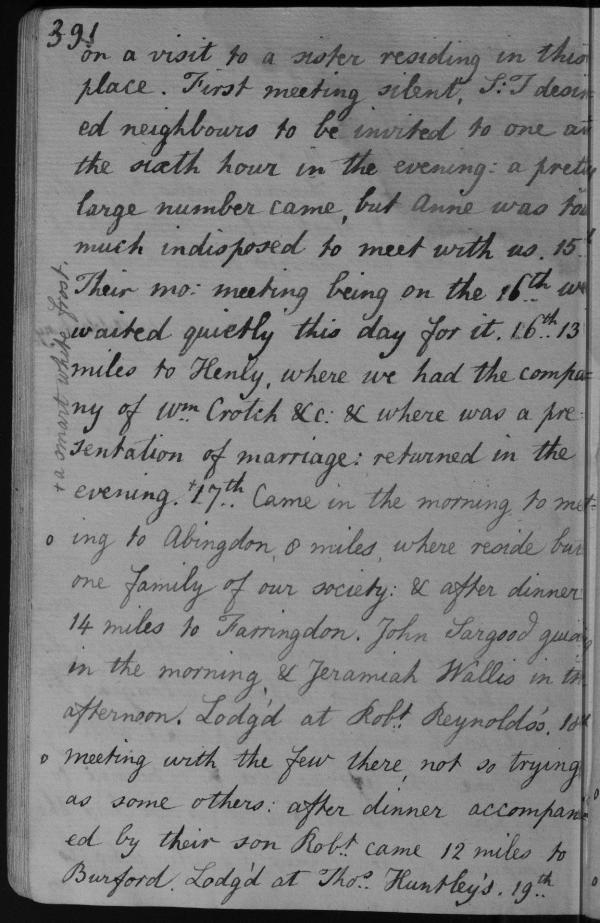 391
on a visit to a sister residing in this
place. First meeting silent, S:T desir
ed neighbours to be invited to one at
the sixth hour in the evening: a pretty
large number came, but Anne was too
much indisposed to meet with us. 15th
Their mo: meeting being on the 16th we
waited quietly this day for it. 16th 13
miles to Henly, where we had the compa=
ny of Wm Crotch &c: & where was a pre
sentation of marriage: returned in the
evening. +17th Came in the morning to met=
+ a smart white frost.
o ing to Abingdon, 8 miles, where reside but
one family of our society: & after dinner
14 miles to Farringdon. John Sargood guid
in the morning & Jeramiah Wallis in the
afternoon. Lodg'd at Robt Reynolds's. 18th
o meeting with the few there, not so trying
as some others: after dinner accompani=
ed by their son Robt came 12 miles to
Burford. Lodg'd at Thos Huntley's. 19th